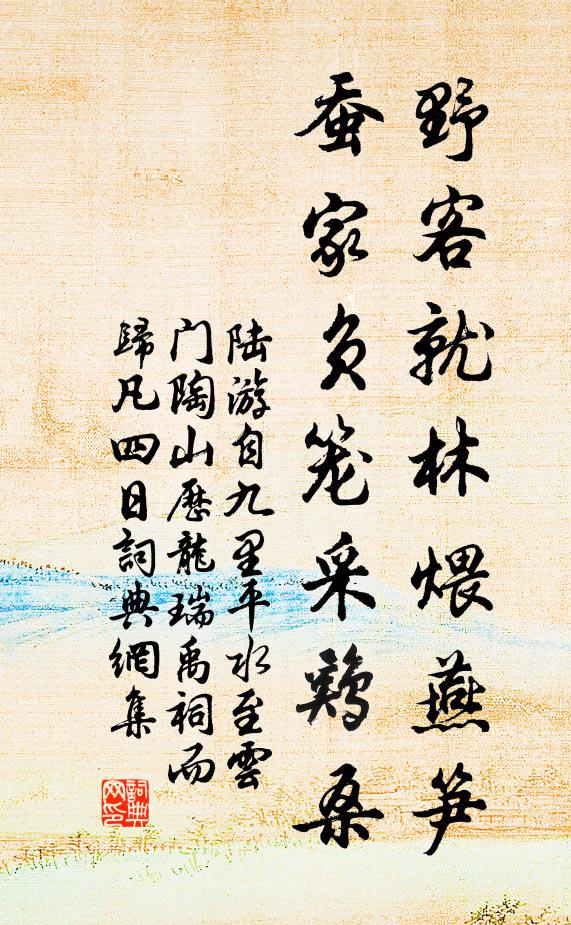 野客就林煨燕笋
蚕家负笼采鸡桑
陆游自九里平水至雲
门陶山歷龍瑞禹祠而
歸凡四日詞典網集
詞典
网印